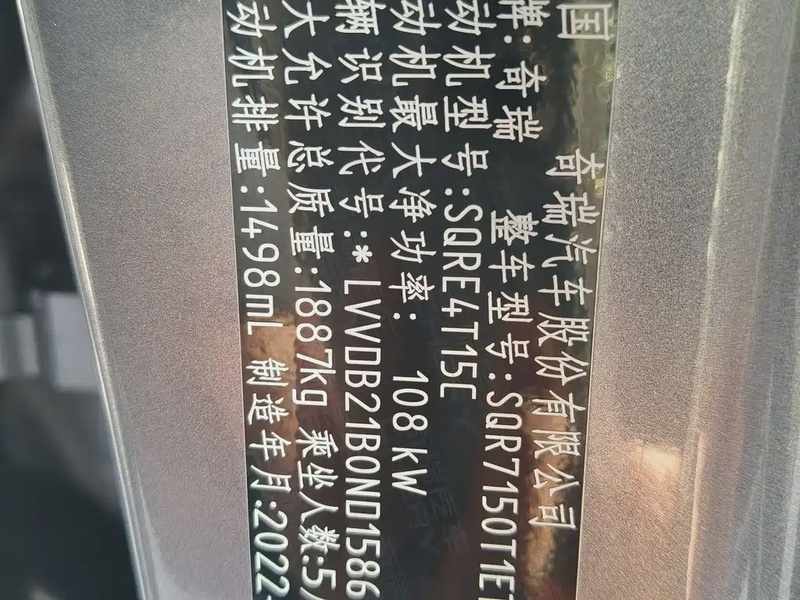 国 奇瑞汽车股份有限公司
牌:奇瑞 整车型号:SQR7150T1ET
动机型号:SQRE4T15C
动机最大净功率: 108kW
辆识别代号:*LVVDB21B0ND1586
大允许总质量:1887kg 乘坐人数:5
动机排量:1498mL 制造年月:2022-